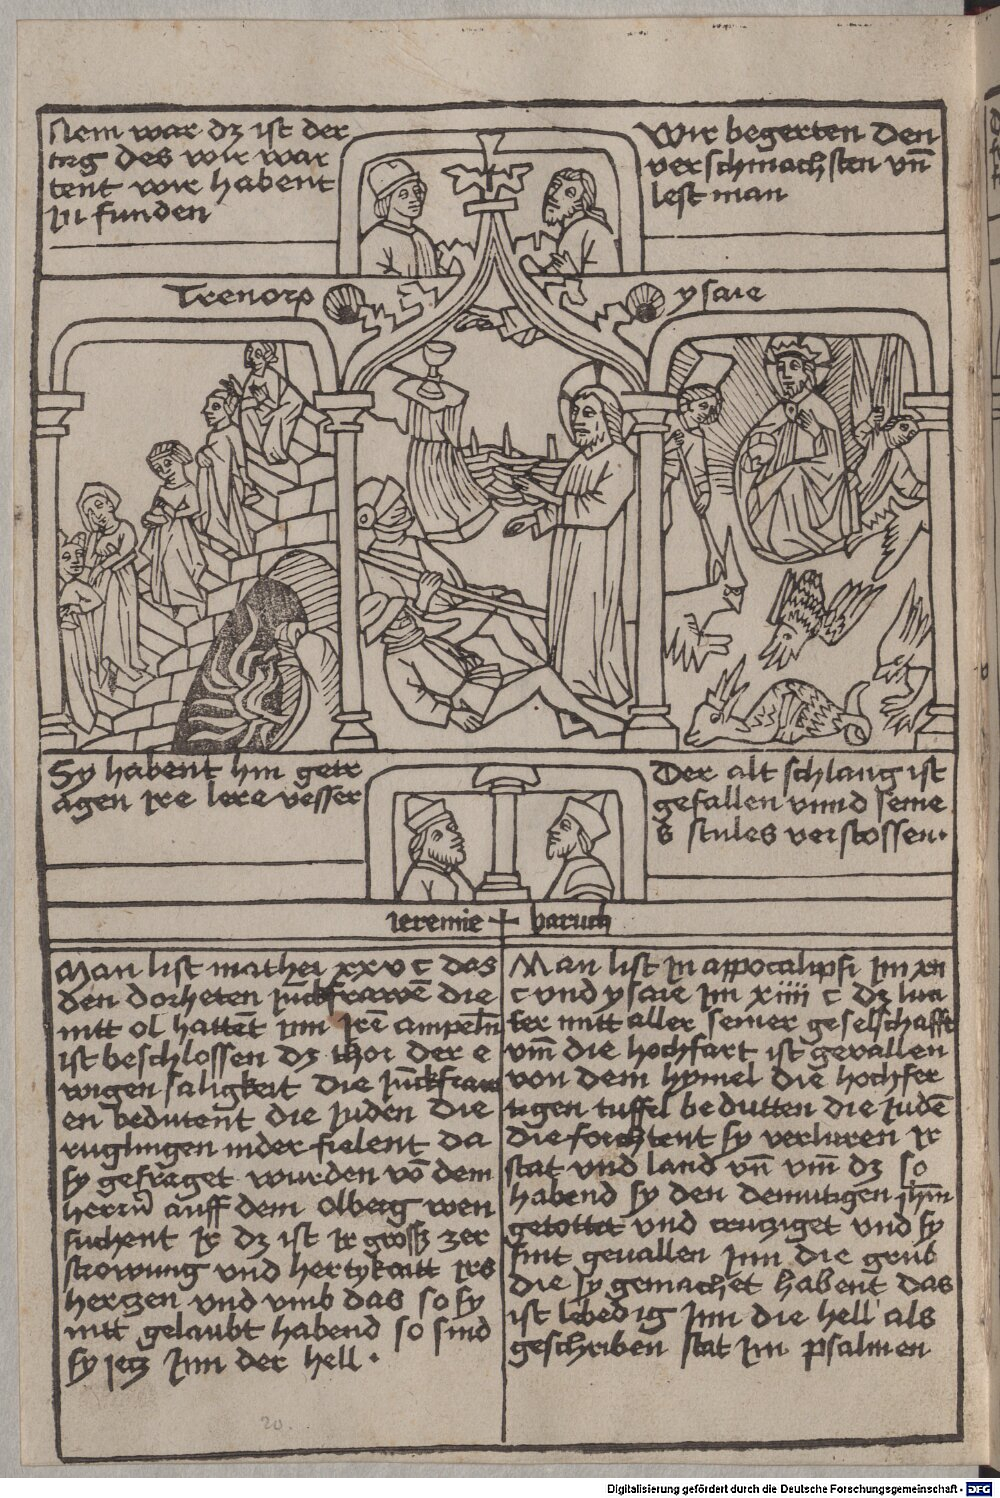 Nem war dz ist der
tag des wir war
tent wir habent
in funden
Wir begerten den
verschmachsten vñ
lest man
Trenorum
ysaie
Sy habent hin getr
agen ire lere vesser
Der alt schlang ist
gefallen vnnd seine
s stules verstossen.
ieremie
baruch
Man list mathei xxv c das
den dorheten iūckfrawē die
nitt ol hattēt inn irē ampeln
ist beschlossen dz thor der e
wigen saligkeit die iūckfraw
en bedutent die iuden die
ruglingen nider fielent da
sy gefraget wurden vō dem
herrñ auff dem olberg wen
suchent ir dz ist ir grossz zer
strowung vnd hertykaitt irs
hertzen vnd vmb das so sy
nitt gelaubt habend so sind
sy ietz inn der hell.
Man list in appocalipsi im xii
c vnd ysaie im xiiii c dz luci
fer mitt aller seiner geselschafft
vm̄ die hochfart ist gevallen
von dem hymel die hochfer
tigen tuffel bedutten die iudē
die forchtent sy verluren ir
stat vnd land vñ vm̄ dz so
habend sy den demutigen ihm̄
getottet vnd crutziget vnd sy
sint gevallen inn die grub
die sy gemachet habent das
ist lebedig inn die hell als
geschriben stat im psalmen
20.
Digitalisierung gefördert durch die Deutsche Forschungsgemeinschaft - DFG